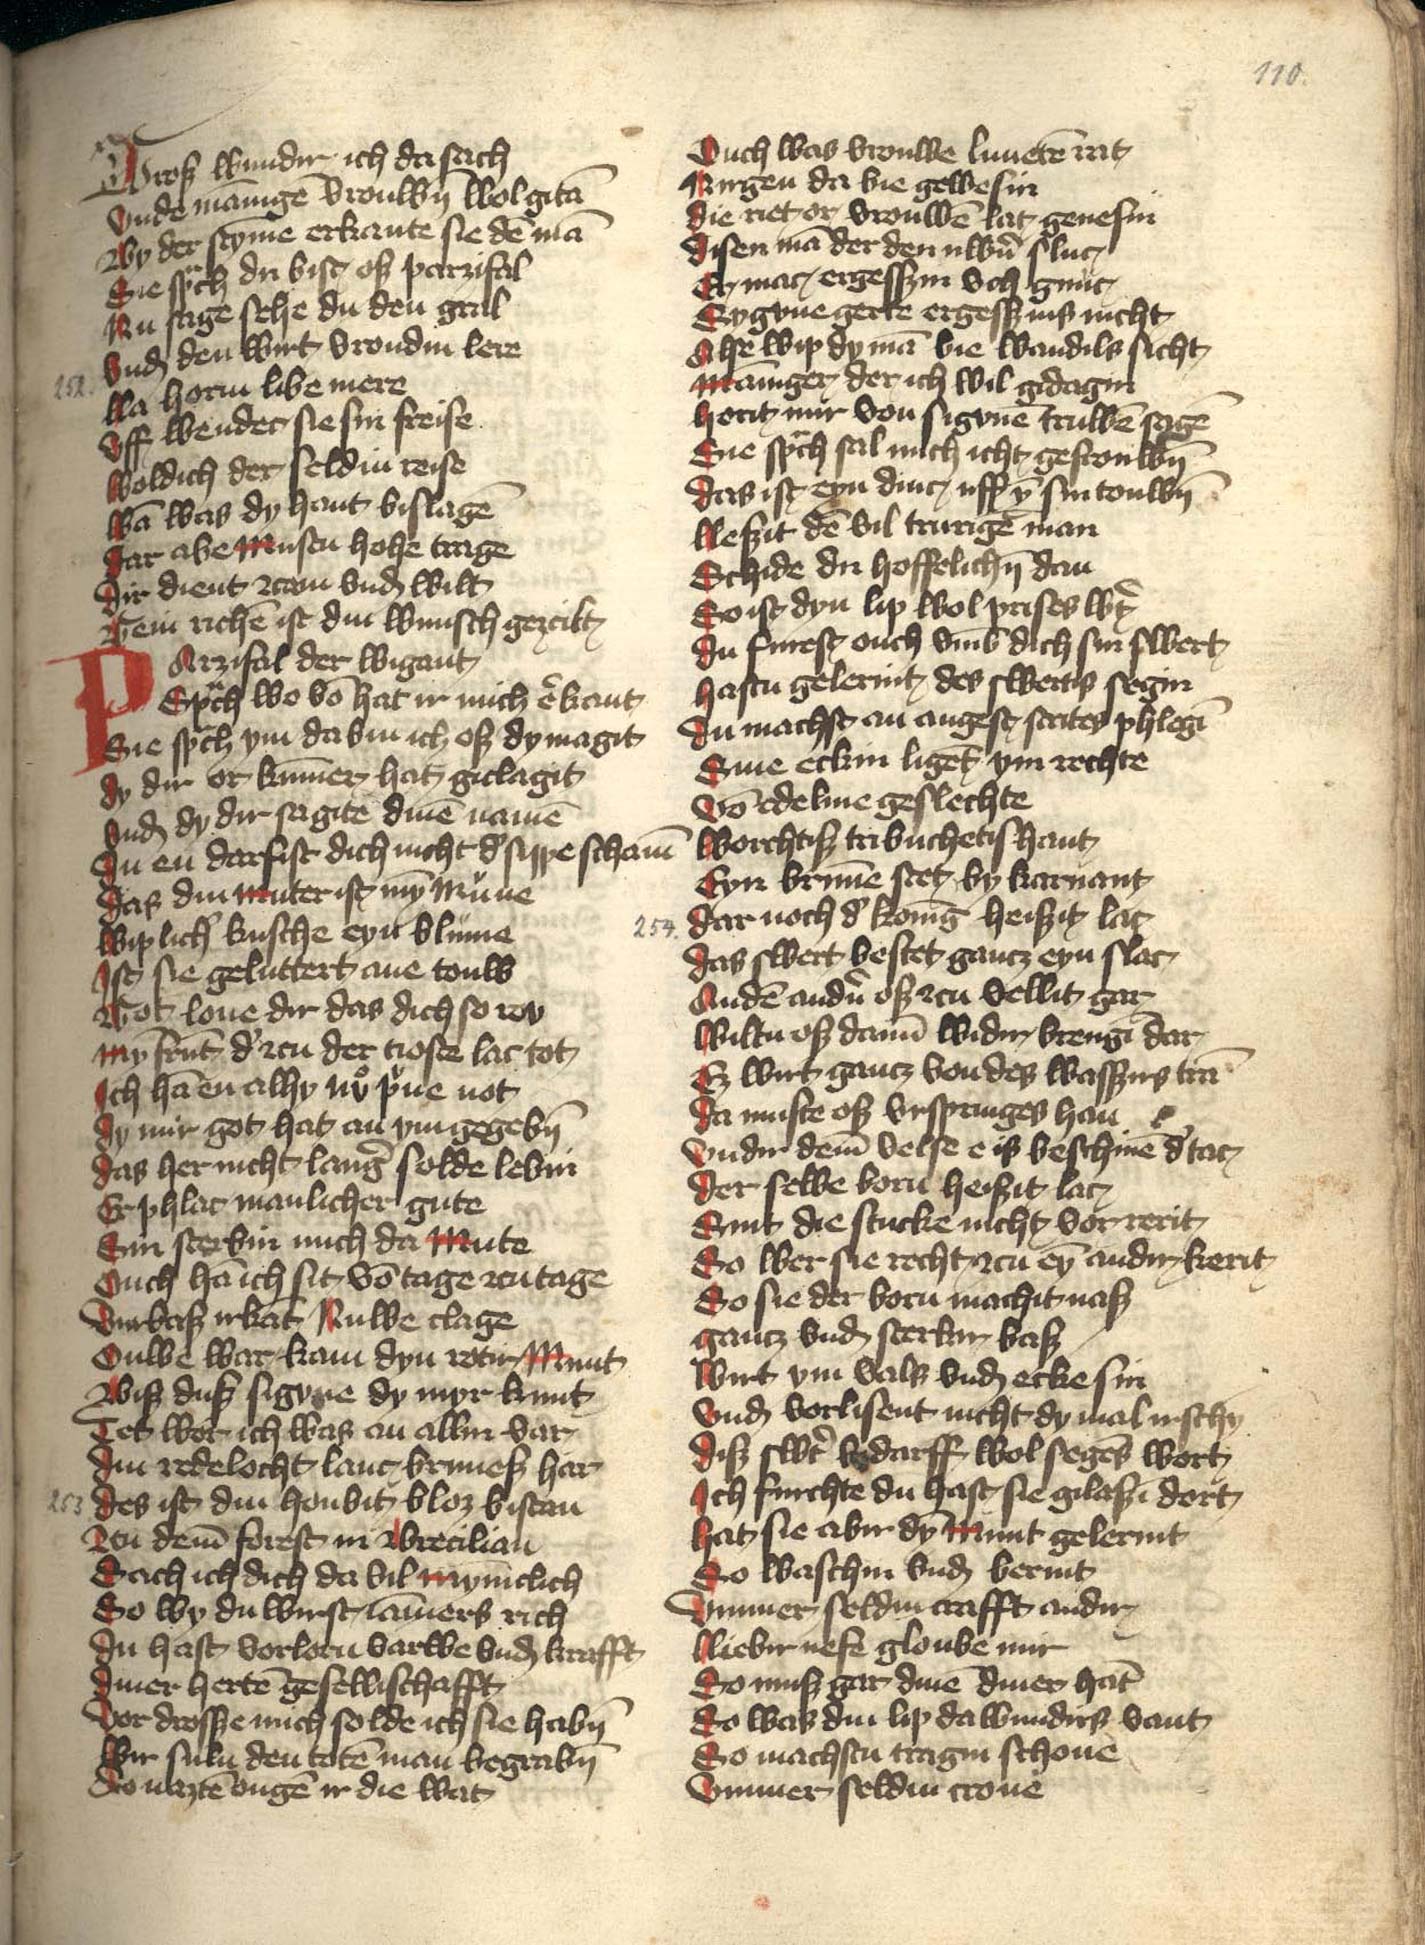 110.
Groß wundir ich da sach
Vnde mānigē vrouwīn wol gitā
By der stȳme erkante sie dē mā
Sie spͬch du bist oß parzifal
Nu sage sehe du den gral
Vnd den wirt vroudin lere
252.
Lla horin libe mere
Vff wendet sie sin freise
Woldich der seldin reise
Wā was dy hant vislagē
Dar abe Musen hohe trage
Dir dient zcam vnd wilt
Kein richē ist din wunsch gezcilt
PArzifal der wigant
Spͬch wo vō hat ir mich ẽkant
Sie spͬch ym da bin ich oß dy magit
Dy dir or kum̄er hat giclagit
Vnd dy dir sagitē dinē namē
Du en darfist dich nicht dˀ sippe scham̄
Das din muter ist mȳ Mume
Wiplichˀ kusche eyn blume
Ist sie geluttert ane touw
Got lone dir das dich so rov
My frūt dˀ zcu der tioste lac tot
Ich hā en alhy nv prͮue not
Dy mir got hat an ym gegebīn
Das her nicht langˀ solde lebin
Er phlac manlicher gute
Sin sterbin mich da Mute
Ouch hā ich sit vō tage zcu tage
Vurbaß irkāt Nuwe clage
Ouwe war kam dyn rotir Munt
Biß duß sigyne dy myr kunt
Tet wor ich was an allin var
Din redelocht lanc bruneß har
253
Des ist din houbit bloz bistan
Zcu dem̄ forest in Brecilian
Sach ich dich da vil mȳniclich
So wy du wirst iam̄ers rich
Du hast vorlorn varwe vnd krafft
Diner hertē gesellischafft
Vor drosße mich solde ich sie habīn
Wir suln den totē man begrabīn
Do naztē ougē ir die wat
Ouch was vrouwe lunetē rat
Nirgen da bie gewesin
Die riet or vrouwē lat genesin
Disen mā der den uwˀn sluc
Er mac ergesßin vch gnuc
Sygyne gerte ergesß ins nicht
Alse wip dy mā bie wandils sicht
Māniger der ich wil gidagin
Horit mir von sigynē truwē sagē
Sie spͬch sal mich icht gefrouwīn
Das ist eyn dinc uff ȳ sin touwīn
Lleßit dē vil trurigē man
Schide du hoffelichīn dan
So ist dyn lip wol prises wˀt
Du furest ouch vmb dich sin swert
Hastu gelernit des swertis segin
Du machst an angest strites phlegī
Sine eckin ligēt ym rechte
Vō edelme geslechte
Worchtiß tribuchetis hant
Eyn brunne stet by karnant
254.
Dar noch dˀ konīg heißit lac
Das swert bestet gantz eyn slac
Andē andˀn oß zcu vellit gar
Wiltu oß dann̄ widir brengī dar
Ez wirt gantz von des wasßirs trā
Da muste oß vrspringes han
Vndir dem̄ velse e is beschinē dˀ tac
Der selbe born heißit lac
Sint die stucke nicht vor rerit
So wer sie recht zcu eȳ andir kerit
So sie der born machit naß
Gantz vnd sterkir baß
Wirt ym valß vnd ecke sin
Vnd vorlisent nicht dy mal irschȳ
Diß swˀt bedarff wol segēs wort
Ich furchte du hast sie gilaßī dort
Hat sie abir dȳ Munt gelernit
So waschin vnd bernit
Vmmer seldin crafft andir
Lliebir nefe gloube mir
So muß gar dinē diner hāt
So was din lip da wundirs vant
So machstu tragin schone
Vmmer seldin crone